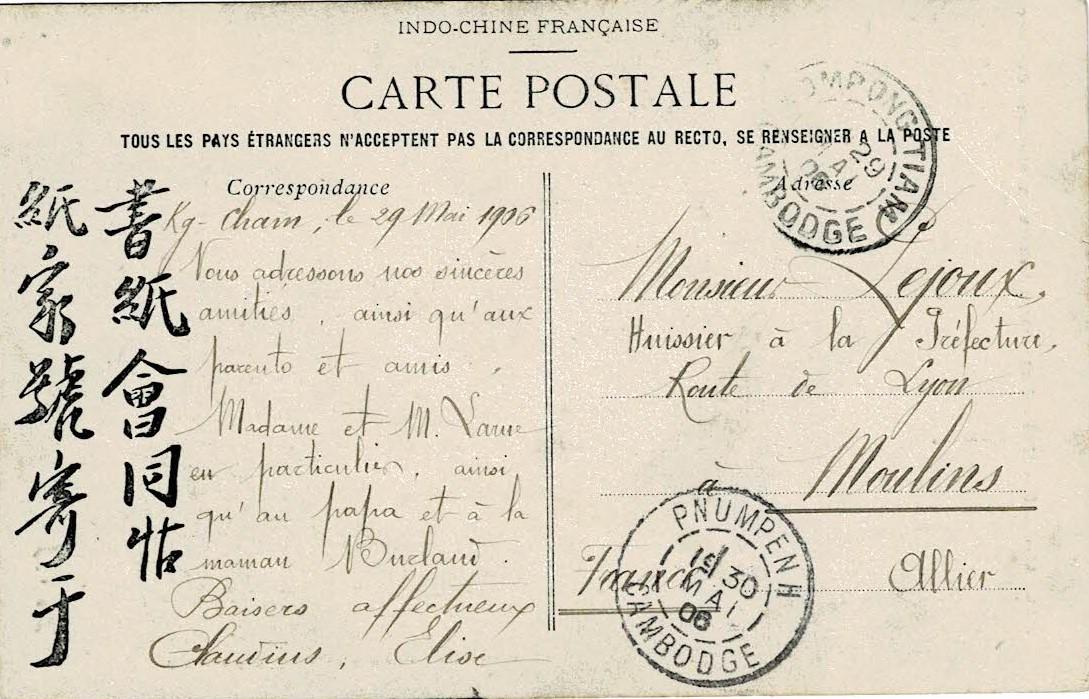 INDO-CHINE FRANÇAISE
CARTE POSTALE
TOUS LES PAYS ÉTRANGERS N'ACCEPTENT PAS LA CORRESPONDANCE AU RECTO, SE RENSEIGNER A LA POSTE
Correspondance
Kg-Cham, le 29 Mai 1906
Nous adressons nos sincères
amitiés, ainsi qu'aux
parents et amis,
Madame et M.
en particulier, ainsi
qu'au papa et à la
maman Burlaud.
Baisers affectueux
Claudius, Elise
Adresse
Monsieur Lejoux,
Huissier à la Préfecture,
Route de Lyon
à Moulins
France Allier
OMPONG TIAM
29
MAI
06
CAMBODGE
PNUMPENH
30
MAI
06
CAMBODGE
書紙會同
紙家號寄于